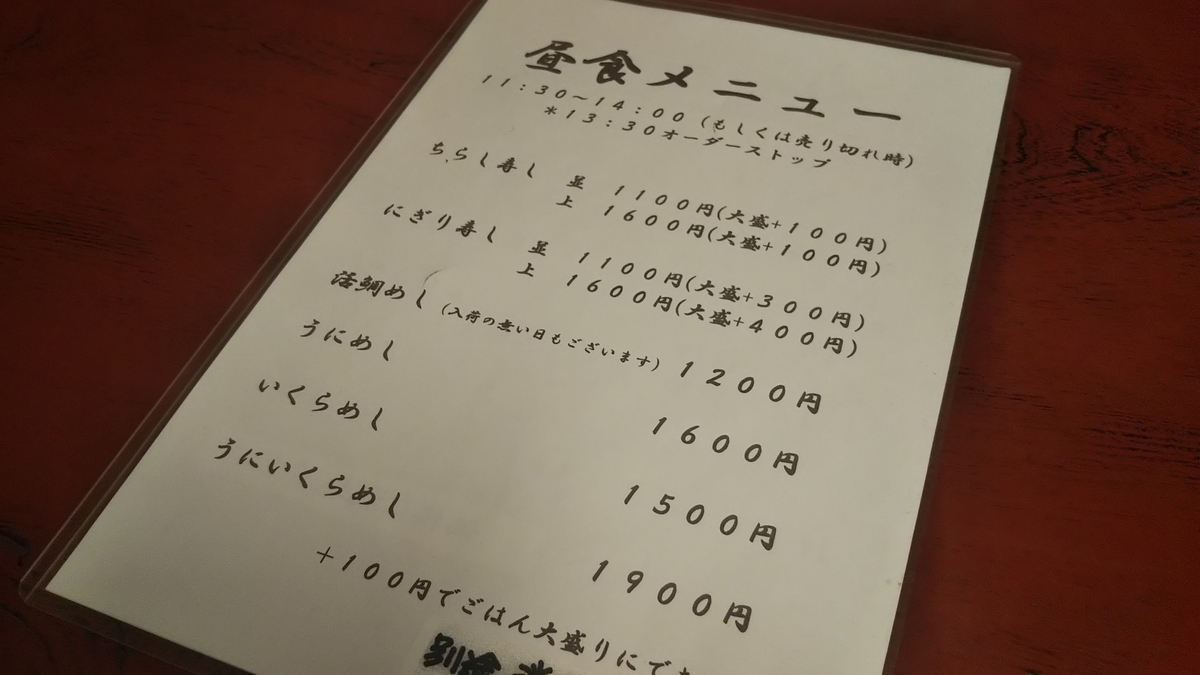 昼食メニュー
11:30～14:00(もしくは売り切れ時)
*13:30オーダーストップ
ちらし寿し 並 1100円(大盛+100円)
上 1600円(大盛+100円)
にぎり寿し 並 1100円(大盛+300円)
上 1600円(大盛+400円)
活鯛めし(入荷の無い日もございます) 1200円
うにめし 1600円
いくらめし 1500円
うにいくらめし 1900円
+100円でごはん大盛りにでき
別途